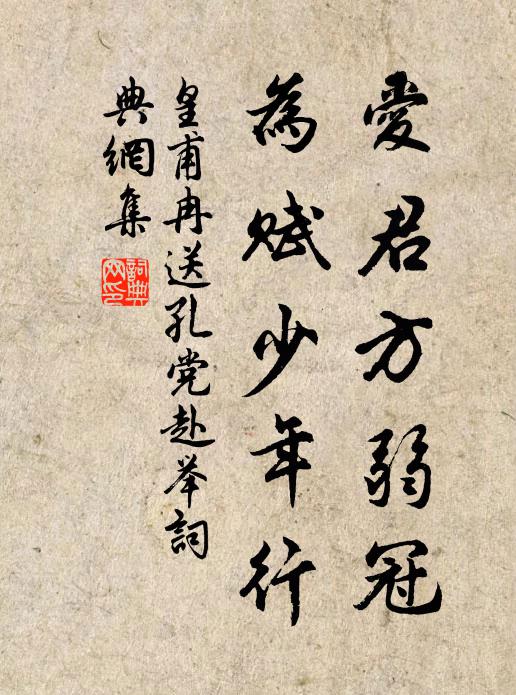 愛君方弱冠
為賦少年行
皇甫冉送孔党赴举詞
典網集
詞典网印